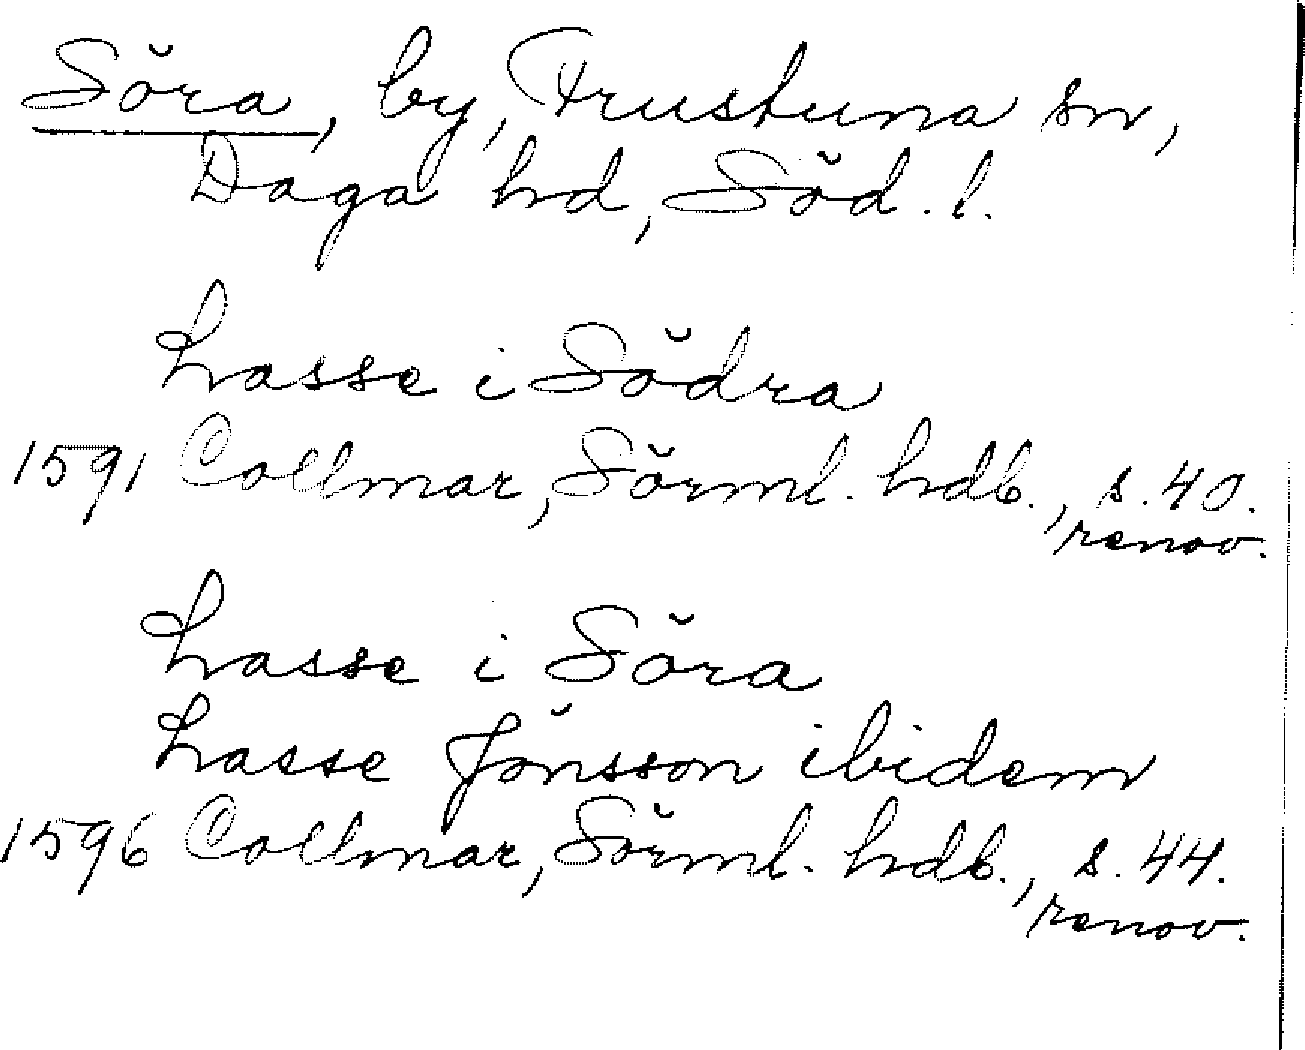 Söra, by, Frustuna sn,
Daga hd, Söd. l.
Lasse i Södra
1591 Collmar, Sörml. hdb., s. 40.
renov.
Lasse i Söra
Lasse Jönsson ibidem
1596 Collmar, Sörml. hdb., s. 44.
renov.